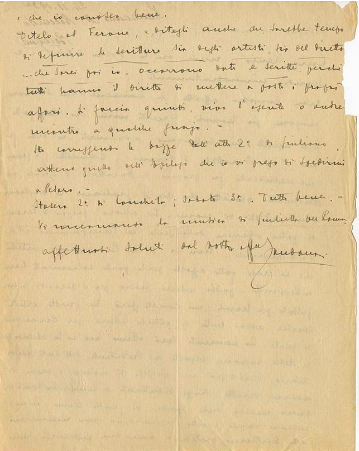 che io conosco bene.
Ditelo al Ferone, e ditegli anche che sarebbe tempo
di definire le scritture sia degli artisti sia del direttore
che sarei poi io. occorrono dati e scritti perchè
tutti hanno il diritto di mettere a posto i propri
affari. Si faccia quindi vivo l'agente o andrà
incontro a qualche
Sto correggendo le bozze dell'atto 2º di Giuliano.
attendo quelle dell'Epilogo che io vi prego di spedirmi
a Pesaro. -
Stasera 2ª di Conchita; Sabato 3ª. Tutto bene. -
Vi raccomando la musica di
affettuosi saluti dal vostro aff Zandonai